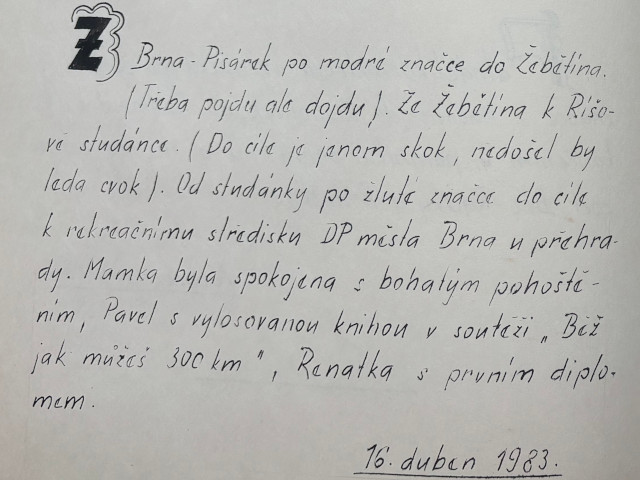 Z Brna - Pisárek po modré značce do Žebětína.
(Třeba pojdu ale dojdu). Ze Žebětína k Ríšo-
vě studánce. (Do cíle je jenom skok, nedošel by
leda cvok). Od studánky po žluté značce do cíle
k rekreačnímu středisku DP města Brna u přehra-
dy. Mamka byla spokojena s bohatým pohoště-
ním, Pavel s vylosovanou knihou v soutěži „Běž
jak můžeš 300 km", Renatka s prvním diplo-
mem.
16. duben 1983.